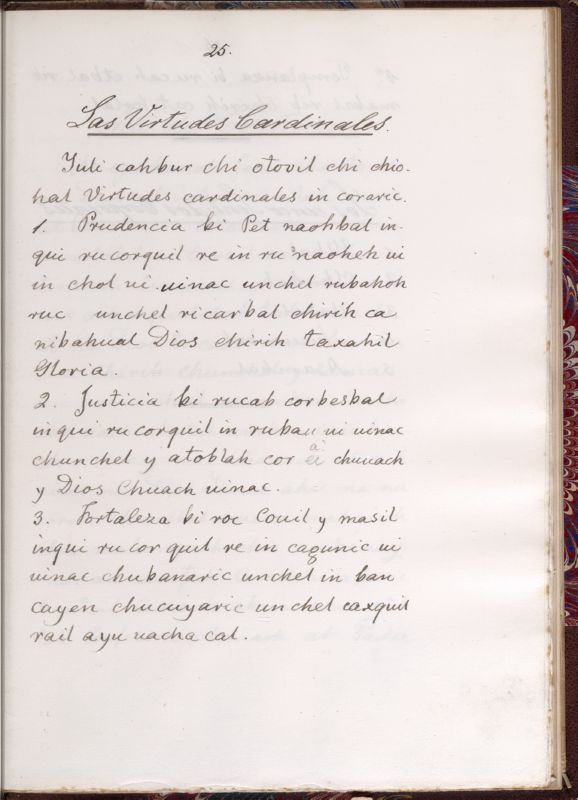 25.
Las Virtudes Cardinales.
Yuli cahbur chi otovil chi chio-
hal Virtudes cardinales in coraric.
1. Prudencia ki Pet naohbal in-
qui rucorquil re in ru naoheh ui
in chol ui uinac unchel rubahoh
ruc unchel ricarbal chirih ca
nibahual Dios chirih taxahil
Gloria.
2. Justicia ki rucab corbesbal
inqui rucorquil in rubau ui uinac
chunchel y atoblah cor chuuach
y Dios Chuach uinac.
3. Fortaleza ki roc Couil y masil
inqui rucorquil re in caqunic ui
uinac chubanaric unchel in ban
cayen chucuyaric unchel caxquil
rail ayu uacha cal.